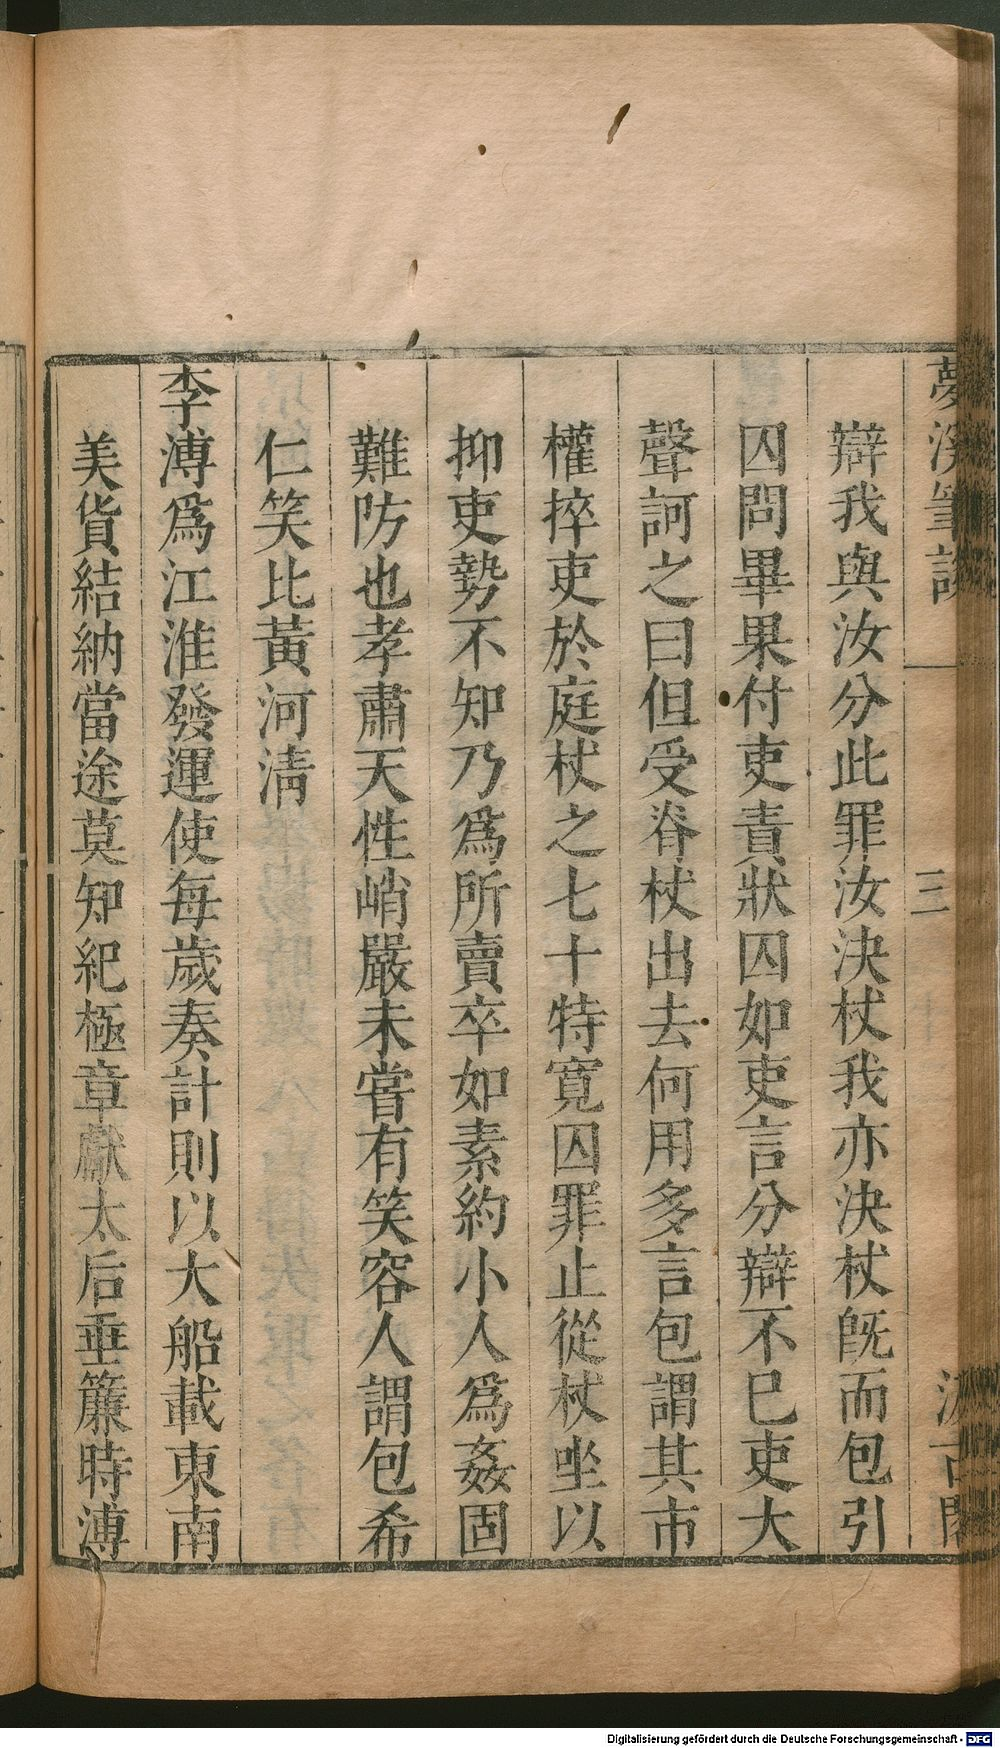 夢溪筆談 三 汲古閣
辯我與汝分此罪汝決杖我亦決杖旣而包引
囚問畢果付吏責狀囚如吏言分辯不已吏大
聲訶之曰但受脊杖出去何用多言包謂其市
權捽吏於庭杖之七十特寬囚罪止從杖坐以
抑吏勢不知乃爲所賣卒如素約小人爲姦固
難防也孝肅天性峭嚴未嘗有笑容人謂包希
仁笑比黃河清
李溥爲江淮發運使每歲奏計則以大船載東南
美貨結納當途莫知紀極章獻太后垂簾時溥
Digitalisierung gefördert durch die Deutsche Forschungsgemeinschaft - DFG